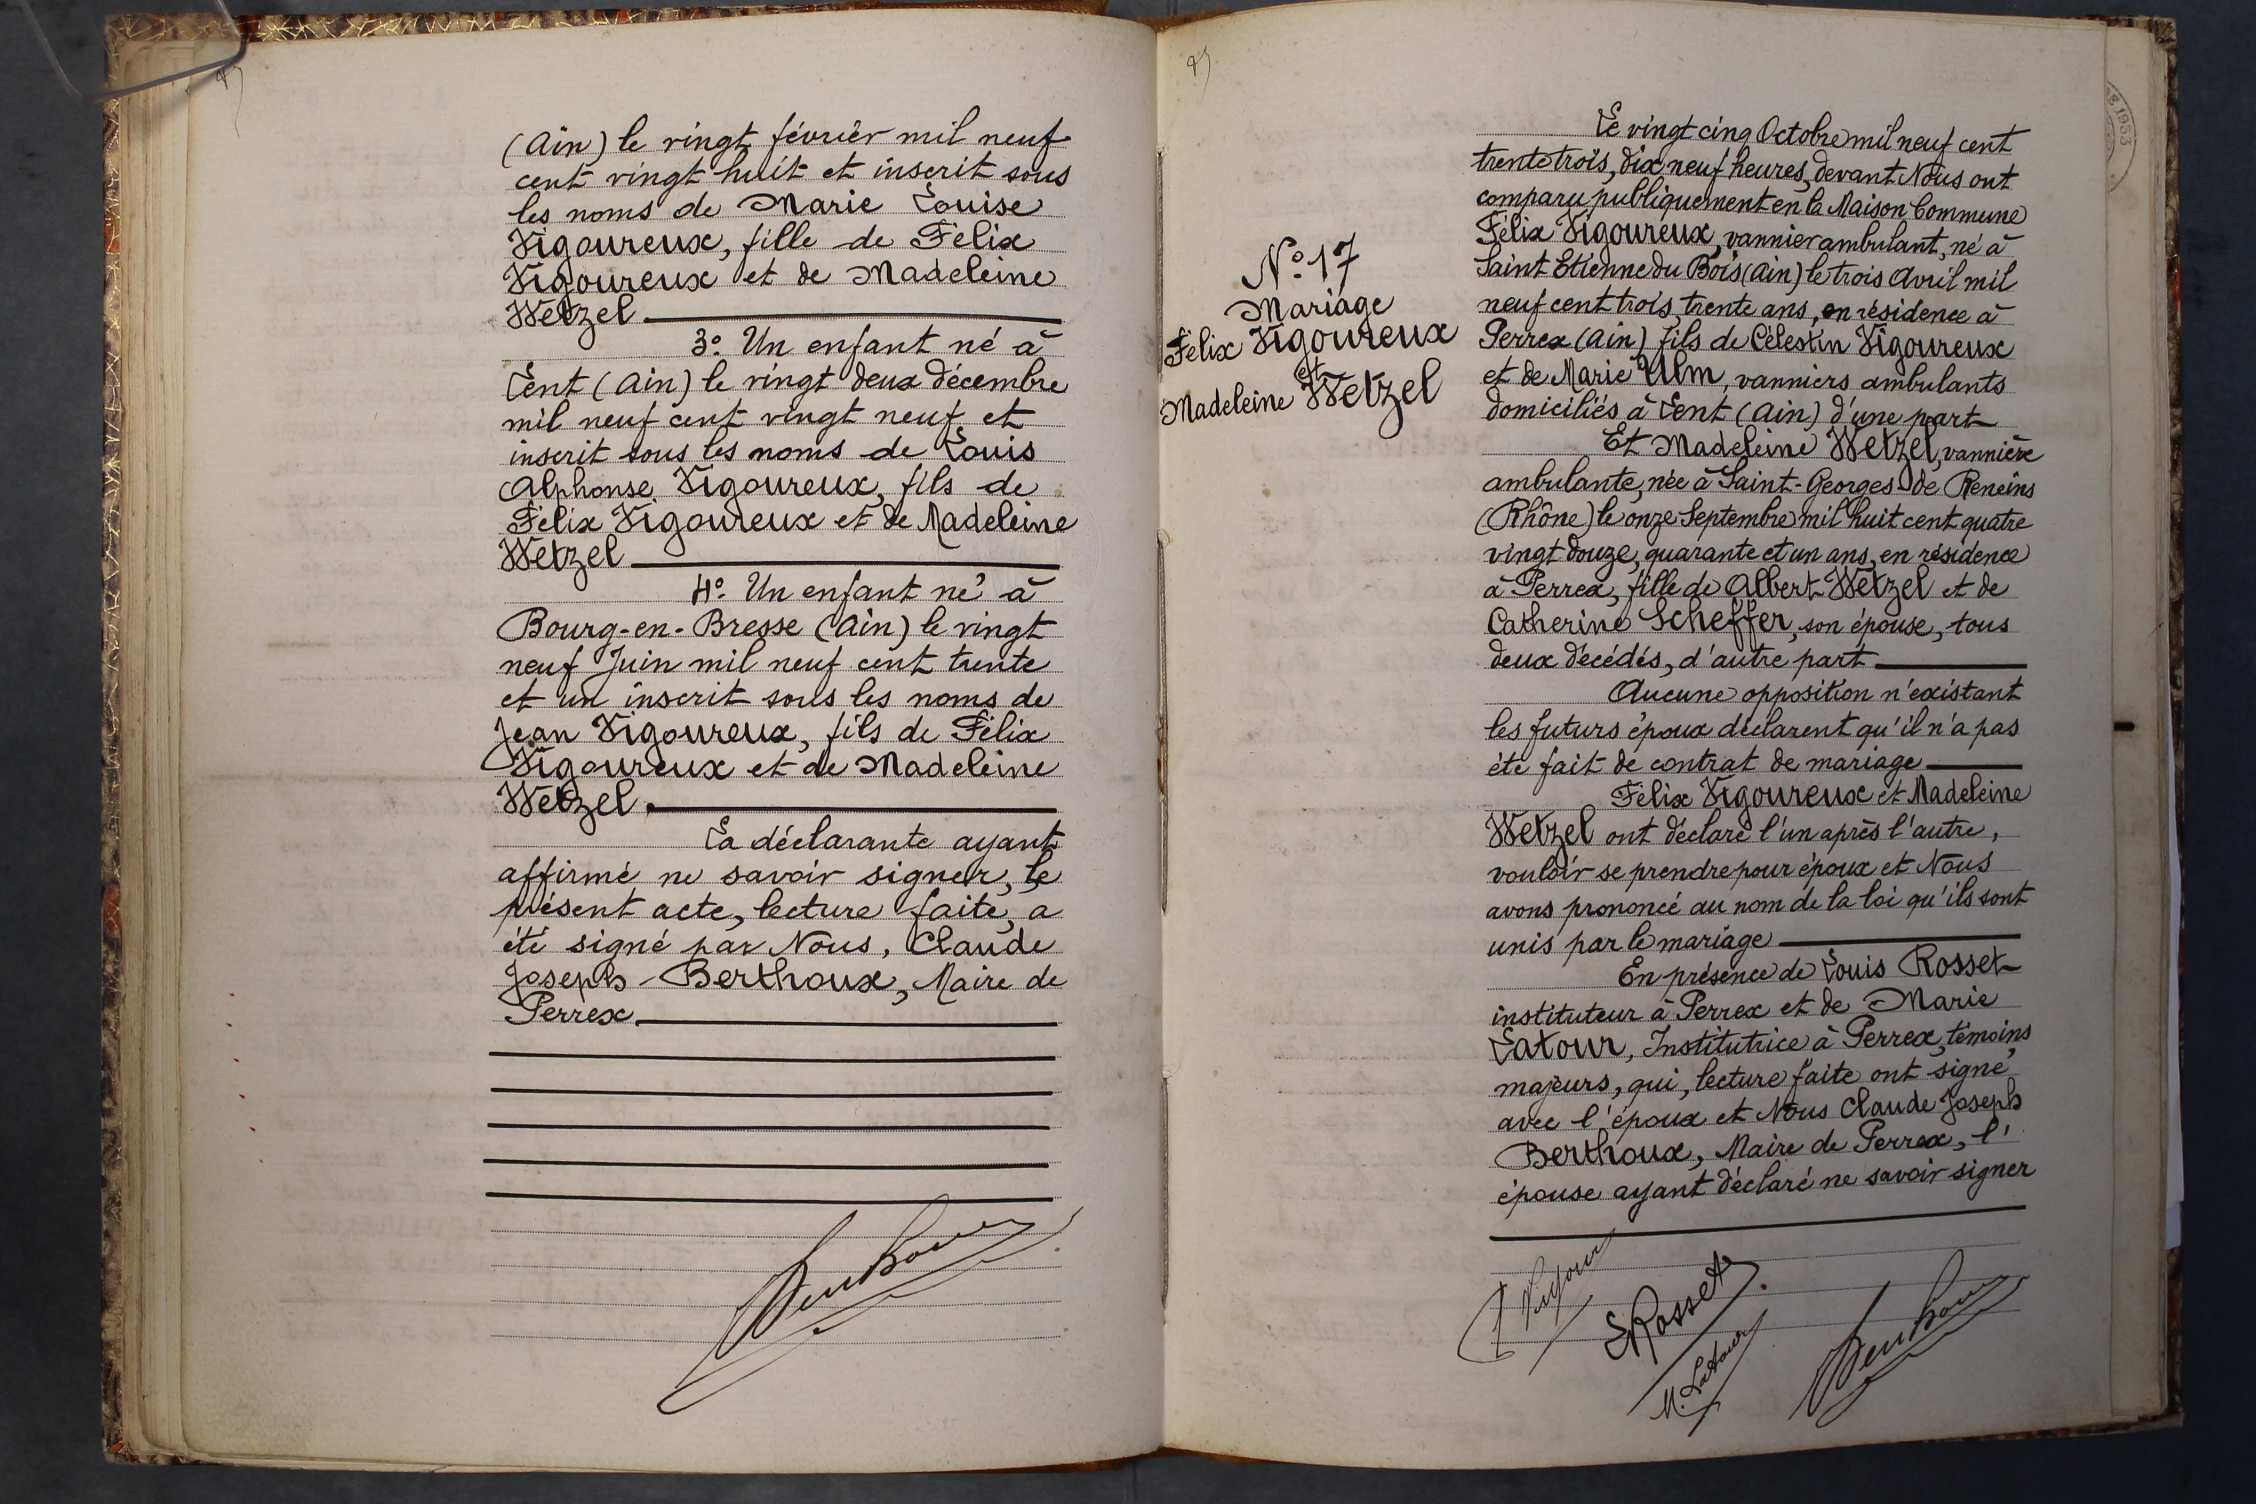 (Ain) le vingt février mil neuf
cent vingt huit et inscrit sous
les noms de Marie Louise
Vigoureux, fille de Félix
Vigoureux et de Madeleine
Wetzel
3º. Un enfant né à
Cent (Ain) le vingt deux décembre
mil neuf cent vingt neuf et
inscrit sous les noms de Louis
Alphonse Vigoureux, fils de
Félix Vigoureux et de Madeleine
Wetzel
4º. Un enfant né à
Bourg-en-Bresse (Ain) le vingt
neuf Juin mil neuf cent trente
et un inscrit sous les noms de
Jean Vigoureux, fils de Félix
Vigoureux et de Madeleine
Wetzel.
La déclarante ayant
affirmé ne savoir signer, le
présent acte, lecture faite, a
été signé par Nous, Claude
Joseph Berthoux, Maire de
Perrex
Nº 17
Mariage
Félix Vigoureux
et
Madeleine Wetzel
Le vingt cinq Octobre mil neuf cent
trente trois, dix neuf heures, devant Nous ont
comparu publiquement en la Maison Commune
Félix Vigoureux, vannier ambulant, né à
Saint Etienne du Bois (Ain) le trois Avril mil
neuf cent trois, trente ans, en résidence à
Perrex (Ain) fils de Célestin Vigoureux
et de Marie Ulm, vanniers ambulants
domiciliés à Cent (Ain) d'une part
Et Madeleine Wetzel, vannière
ambulante, née à Saint-Georges-de Reneins
(Rhône) le onze Septembre mil huit cent quatre
vingt douze, quarante et un ans, en résidence
à Perrex, fille de Albert Wetzel et de
Catherine Scheffer, son épouse, tous
deux décédés, d'autre part
Aucune opposition n'existant
les futurs époux déclarent qu'il n'a pas
été fait de contrat de mariage
Félix Vigoureux et Madeleine
Wetzel ont déclaré l'un après l'autre,
vouloir se prendre pour époux et Nous
avons prononcé au nom de la loi qu'ils sont
unis par le mariage
En présence de Louis Rosset
instituteur à Perrex et de Marie
Latour, Institutrice à Perrex, témoins
majeurs, qui, lecture faite ont signé
avec l'époux et Nous Claude Joseph
Berthoux, Maire de Perrex, l'
épouse ayant déclaré ne savoir signer
Rosset
M. Latour
1933